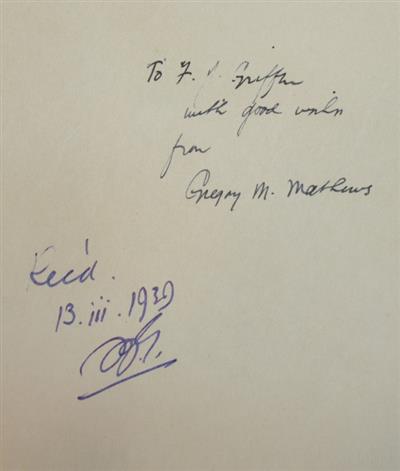 To F. J. Griffin
with good wishes
from
Gregory M. Mathews
Rec'd.
13.iii.1939